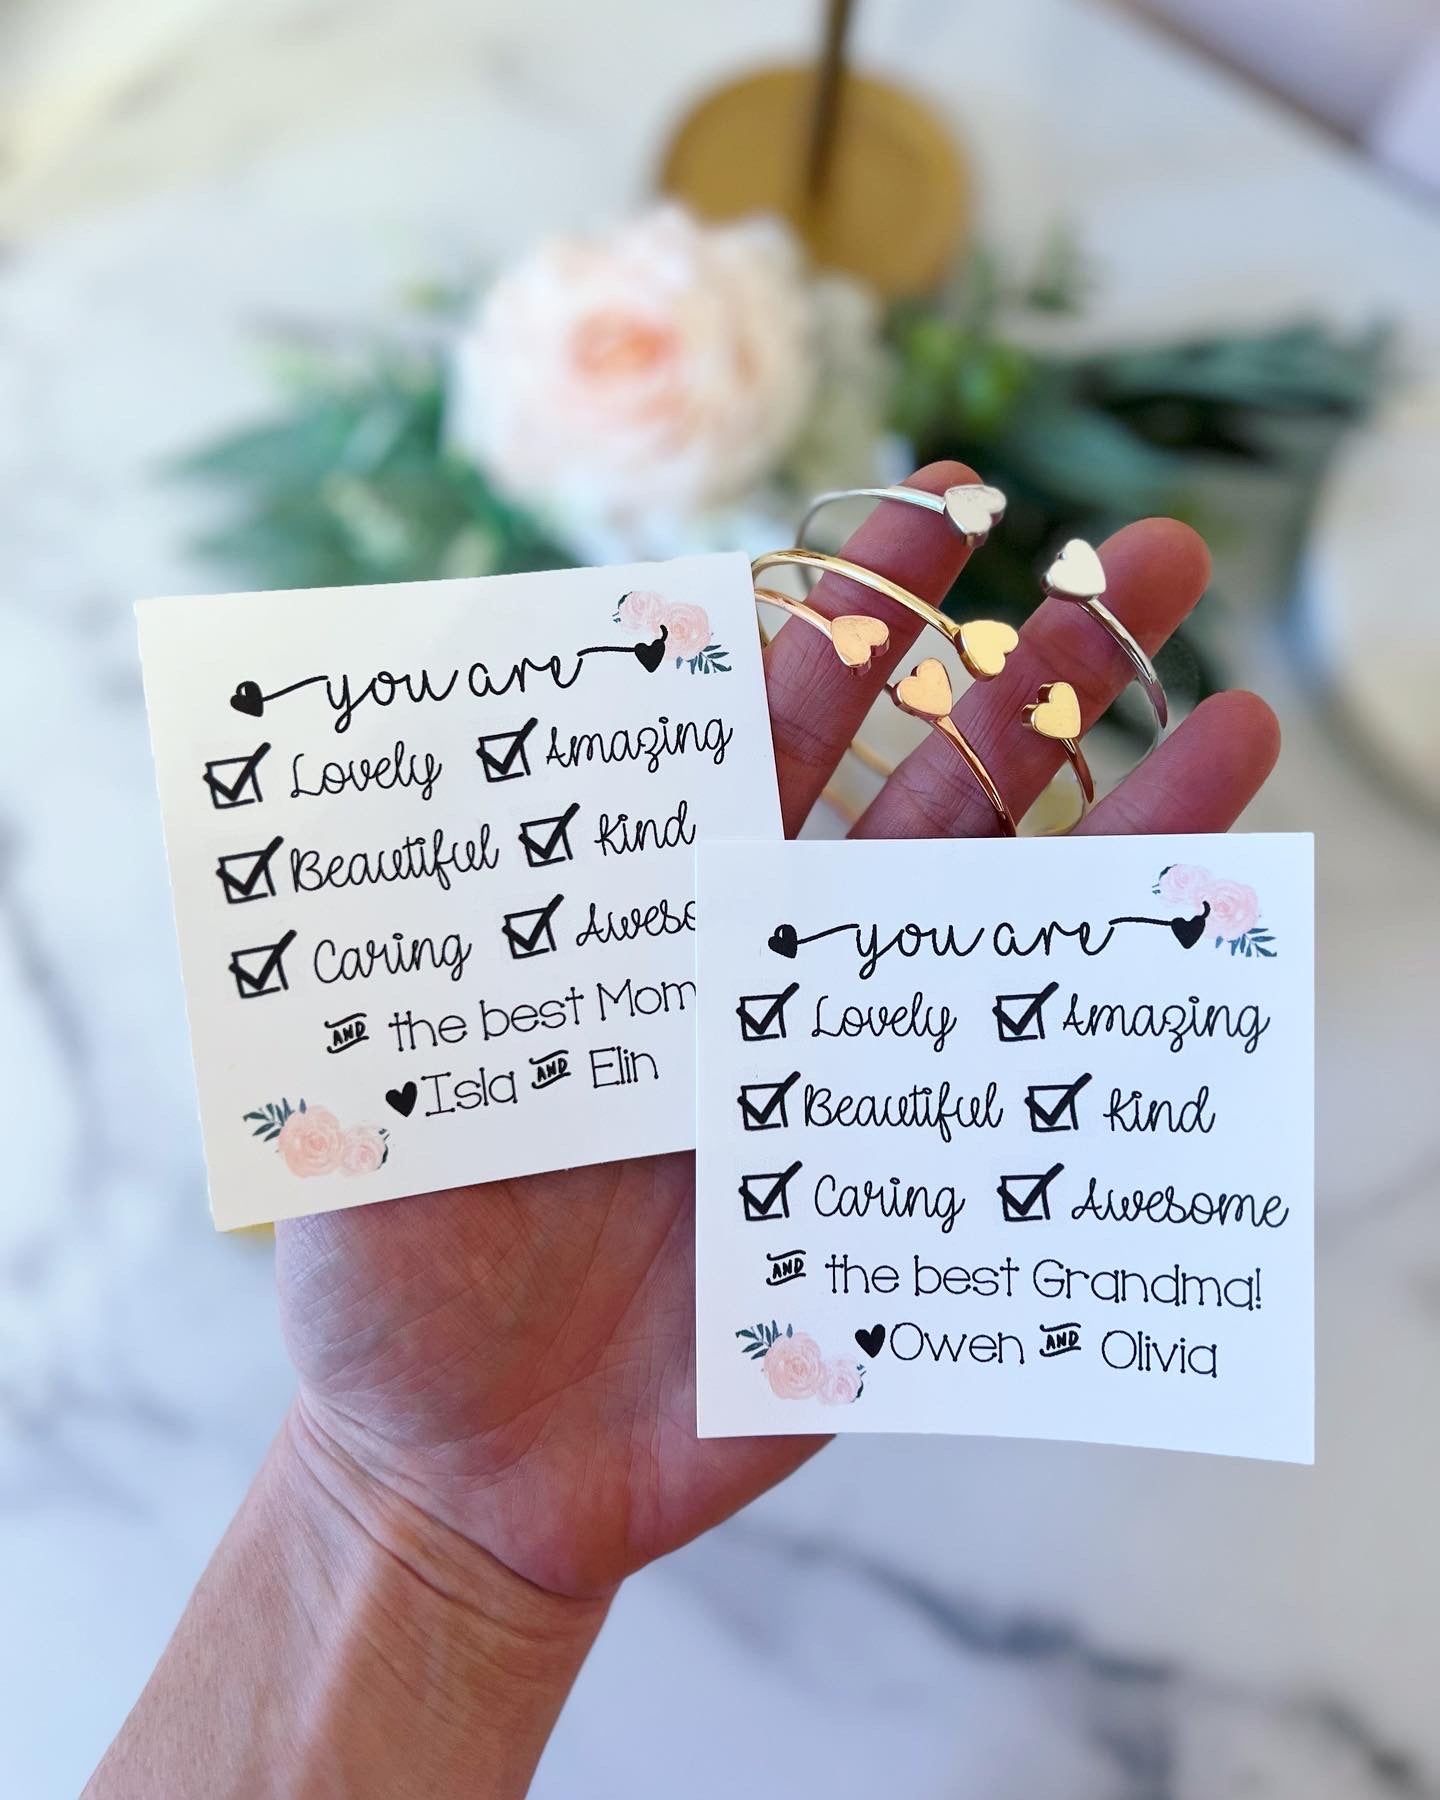 you are
Lovely Amazing
Beautiful Kind
Caring Aweso
AND the best Mom
Isla AND Elin
you are
Lovely Amazing
Beautiful Kind
Caring Awesome
AND the best Grandma!
Owen AND Olivia